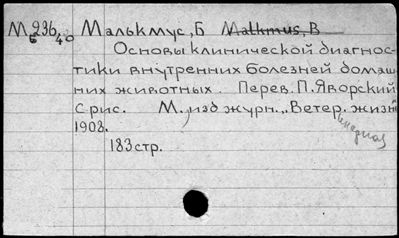 М 236/40 Малькмус, Б Malkmus, B
Основы клинической диагнос-
тики внутренних болезней домаш
них животных. Перев. П. Яворский
с рис. М., изд журн. „Ветер. жизнь
1903.
183 стр.